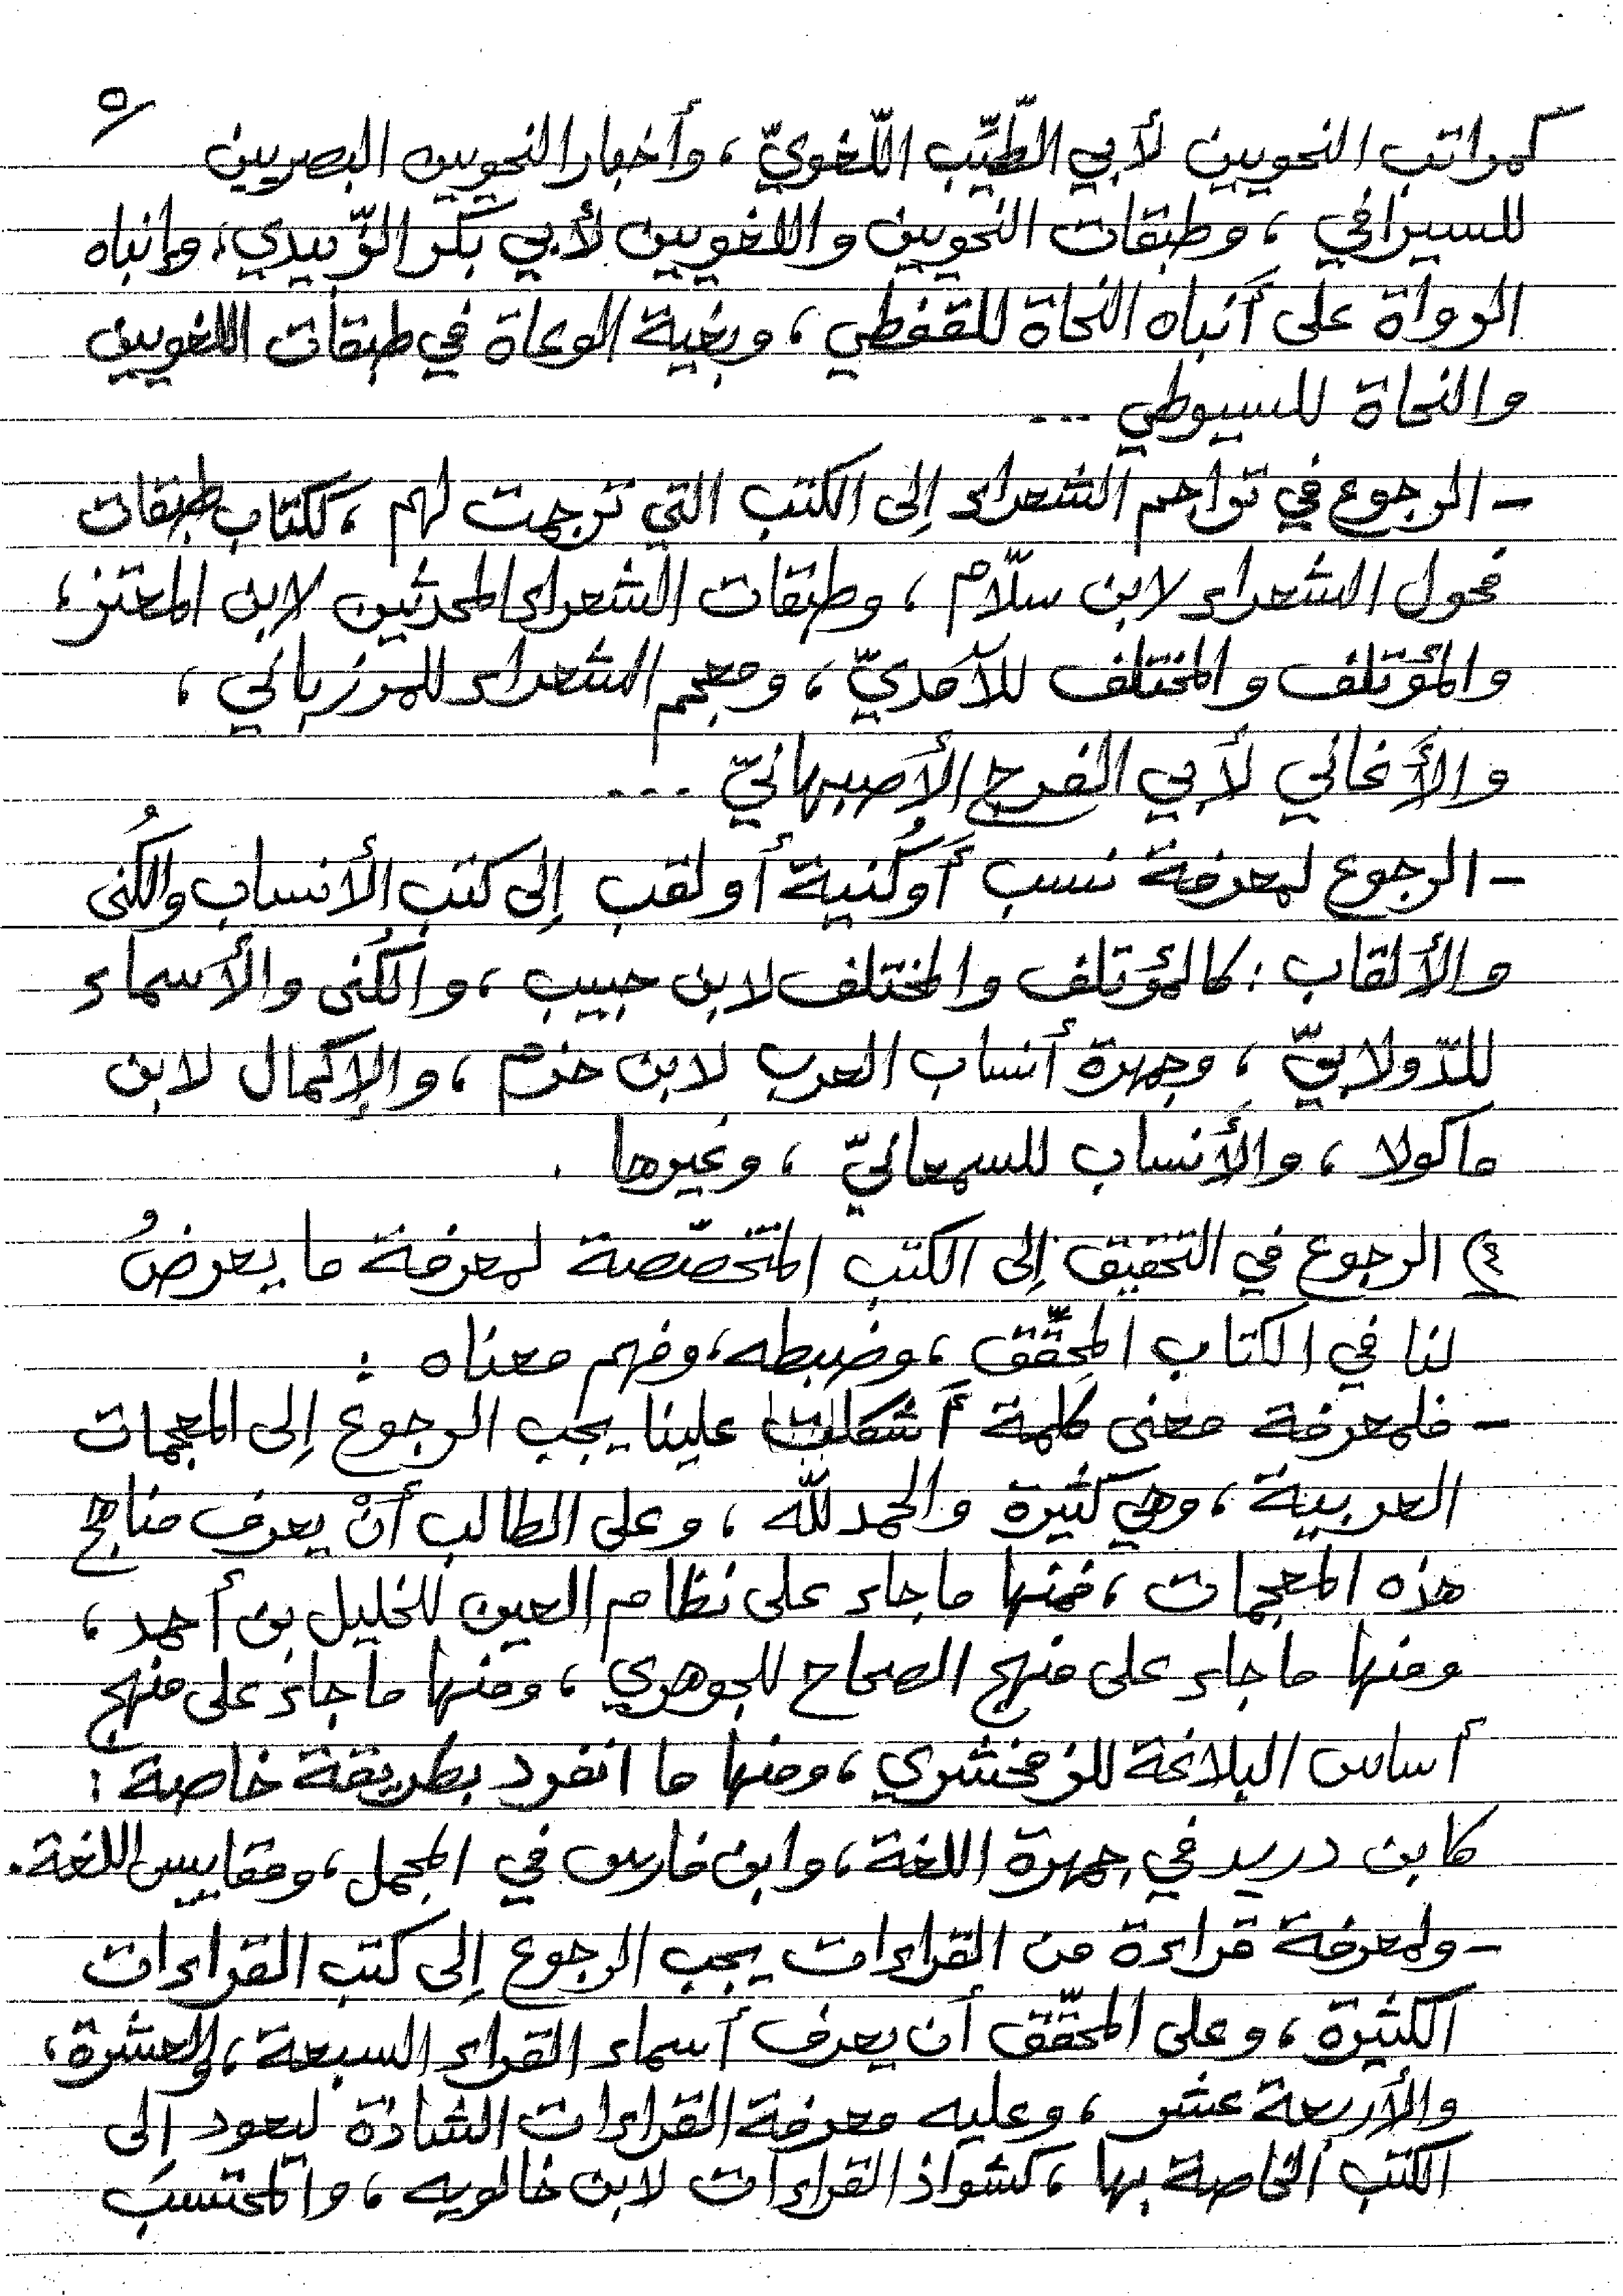 ٥
كمراتب النحويين لأبي الطّيِّب اللّغويّ ، وأخبار النحويين البصريين
للسيرافي ، وطبقات النحويين واللغويين لأبي بكر الزّبيدي، وإنباه
الرواة على أنباه النحاة للقفطي ، وبغية الوعاة في طبقات اللغويين
والنحاة للسيوطي ...
- الرجوع في تراجم الشعراء إلى الكتب التي ترجمت لهم ، ككتاب طبقات
فحول الشعراء لابن سلّام ، وطبقات الشعراء المحدثين لابن المعتز ،
والمؤتلف والمختلف للآمديّ ، ومعجم الشعراء للمرزباني ،
والأغاني لأبي الفرج الأصبهانيّ ...
- الرجوع لمعرفة نسب أو كُنية أو لقب إلى كتب الأنساب والكُنى
والألقاب : كالمؤتلف والمختلف لابن حبيب ، والكُنى والأسماء
للدّولابيّ ، وجمهرة أنساب العرب لابن حزم ، والإكمال لابن
ماكولا ، والأنساب للسمعانيّ ، وغيرها .
٤) الرجوع في التحقيق إلى الكتب المتخصّصة لمعرفة ما يعرضُ
لنا في الكتاب المحقَّق ، وضبطه ، وفهم معناه :
- فلمعرفة معنى كلمة أشكلت علينا يجب الرجوع إلى المعجمات
العربية ، وهي كثيرة والحمد للّه ، وعلى الطالب أنْ يعرف مناهج
هذه المعجمات ، فمنها ما جاء على نظام العين للخليل بن أحمد ،
ومنها ما جاء على منهج الصحاح للجوهري ، ومنها ما جاء على منهج
أساس البلاغة للزمخشري ، ومنها ما انفرد بطريقة خاصة :
كابن دريد في جمهرة اللغة ، وابن فارس في المجمل ، ومقاييس اللغة .
- ولمعرفة قراءة من القراءات يجب الرجوع إلى كتب القراءات
الكثيرة ، وعلى المحقّق أن يعرف أسماء القراء السبعة ، والعشرة ،
والأربعة عشر ، وعليه معرفة القراءات الشاذة ليعود إلى
الكتب الخاصة بها ، كشواذ القراءات لابن خالويه ، والمحتسب